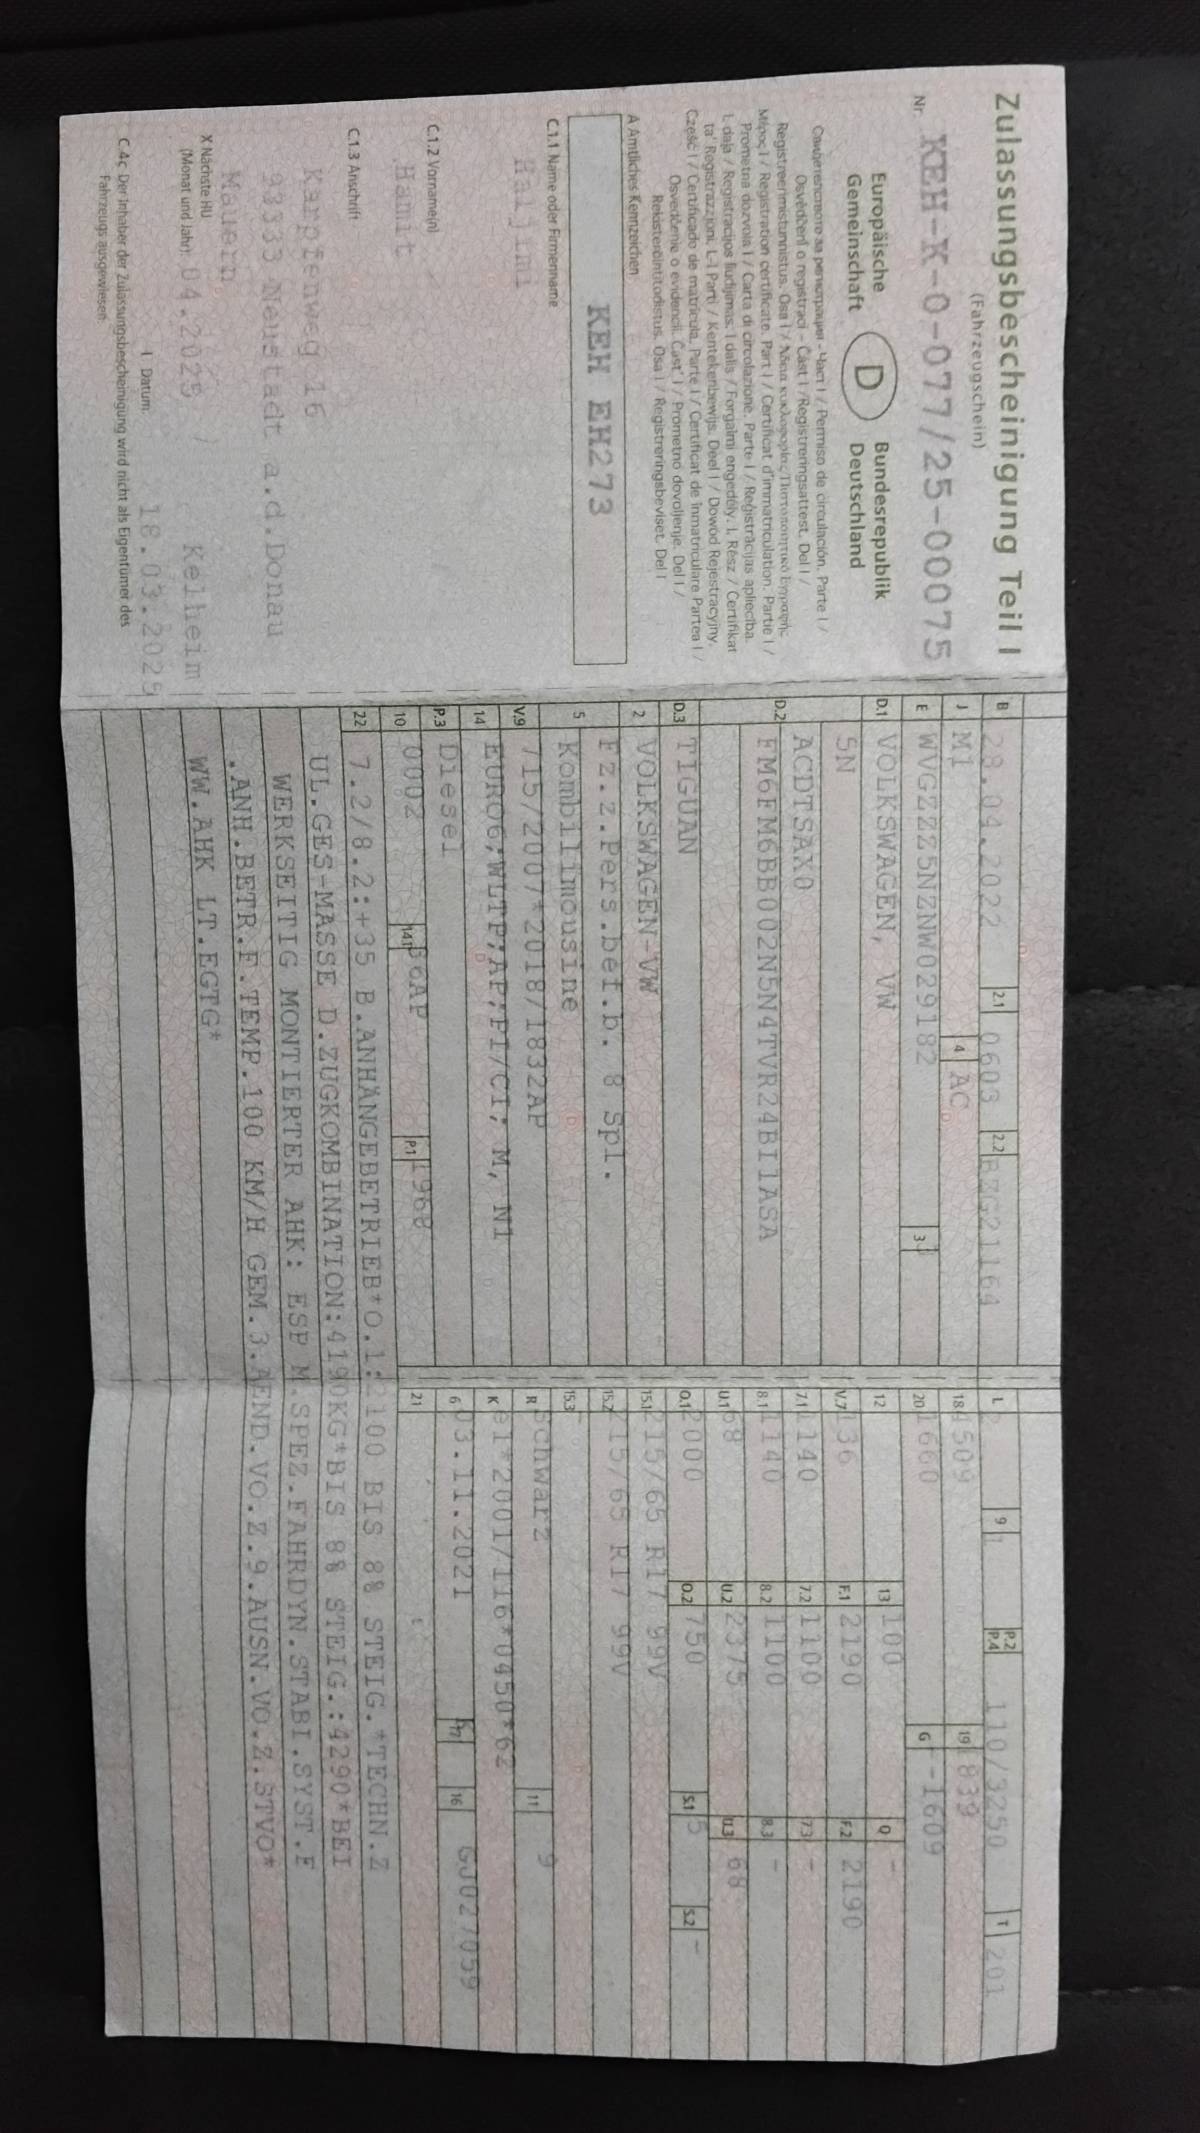 Zulassungsbescheinigung Teil I
(Fahrzeugschein)
Nr. KEH-K-0-077/25-00075
Europäische Gemeinschaft
D
Bundesrepublik Deutschland
Свидетелство за регистрация - Част I / Permiso de circulación. Parte I /
Osvědčení o registraci - Část I / Registreringsattest. Del I /
Registreerimistunnistus. Osa I / Άδεια κυκλοφορίας/Πιστοποιητικό Εγγραφής.
Μέρος I / Registration certificate. Part I / Certificat d'immatriculation. Partie I /
Prometna dozvola I / Carta di circolazione. Parte I / Reģistrācijas apliecība.
I. daļa / Registracijos liudijimas. I dalis / Forgalmi engedély. I. Rész / Ċertifikat
ta' Reġistrazzjoni. L-1 Parti / Kentekenbewijs. Deel I / Dowód Rejestracyjny.
Część I / Certificado de matrícula. Parte I / Certificat de înmatriculare Partea I /
Osvedčenie o evidencii. Časť I / Prometno dovoljenje. Del I /
Rekisteröintitodistus. Osa I / Registreringsbeviset. Del I
A Amtliches Kennzeichen
KEH EH273
C.1.1 Name oder Firmenname
Haljimi
C.1.2 Vorname(n)
Hamit
C.1.3 Anschrift
Karpfenweg 16
93333 Neustadt a.d.Donau
Mauern
X Nächste HU
(Monat und Jahr) 04.2025 / Kelheim
I Datum: 18.03.2025
C.4c Der Inhaber der Zulassungsbescheinigung wird nicht als Eigentümer des
Fahrzeugs ausgewiesen.
B 28.04.2022 2.1 0603 2.2 BZG21164
J M1 4 AC
E WVGZZZ5NZNW029182 3
D.1 VOLKSWAGEN, VW
5N
D.2 ACDTSAX0
FM6FM6BB002N5N4TVR24BI1ASA
D.3 TIGUAN
2 VOLKSWAGEN-VW
5 Fz.z.Pers.bef.b. 8 Spl.
Kombilimousine
V.9 715/2007*2018/1832AP
14 EURO6;WLTP;AP;PI/CI; M, N1
P.3 Diesel
10 0002 14.1 36AP P.1 1968
L 2 9 1 P.2 P.4 110/3250 T 201
18 4509 19 1839
20 1660 G --1609
12 13 100 Q -
V.7 136 F.1 2190 F.2 2190
7.1 1140 7.2 1100 7.3 -
8.1 1140 8.2 1100 8.3 -
U.1 68 U.2 2375 U.3 68
O.1 2000 O.2 750 S.1 5 S.2 -
15.1 215/65 R17 99V
15.2 215/65 R17 99V
15.3
R Schwarz 11 9
K e1*2001/116*0450*62
6 03.11.2021 17 16 GJ027059
21
22 7.2/8.2:+35 B.ANHÄNGEBETRIEB*O.1:2100 BIS 8% STEIG.*TECHN.Z
UL.GES-MASSE D.ZUGKOMBINATION:4190KG*BIS 8% STEIG.:4290*BEI
WERKSEITIG MONTIERTER AHK: ESP M.SPEZ.FAHRDYN.STABI.SYST.F
.ANH.BETR.F.TEMP.100 KM/H GEM.3.AEND.VO.Z.9.AUSN.VO.Z.STVO*
WW.AHK LT.EGTG*